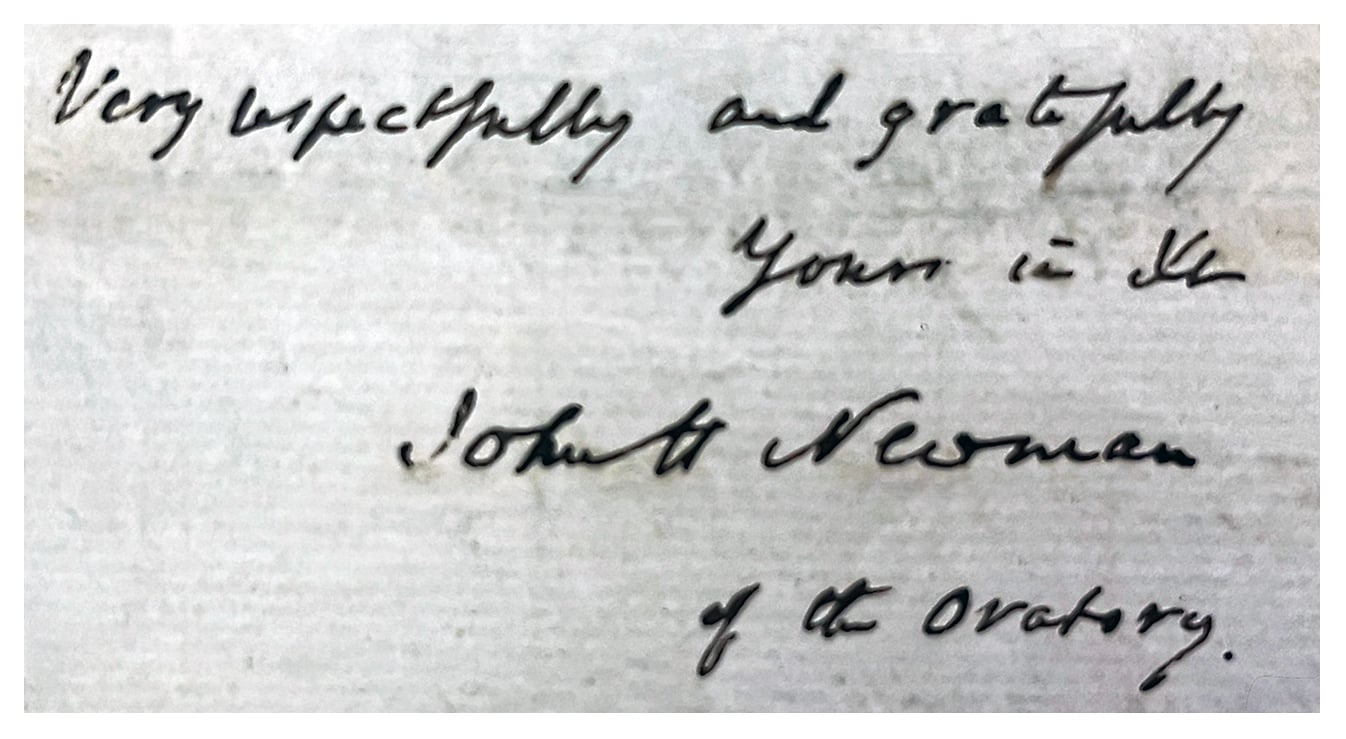 Very respectfully and gratefully
Yours in Xt
John H Newman
of the Oratory.